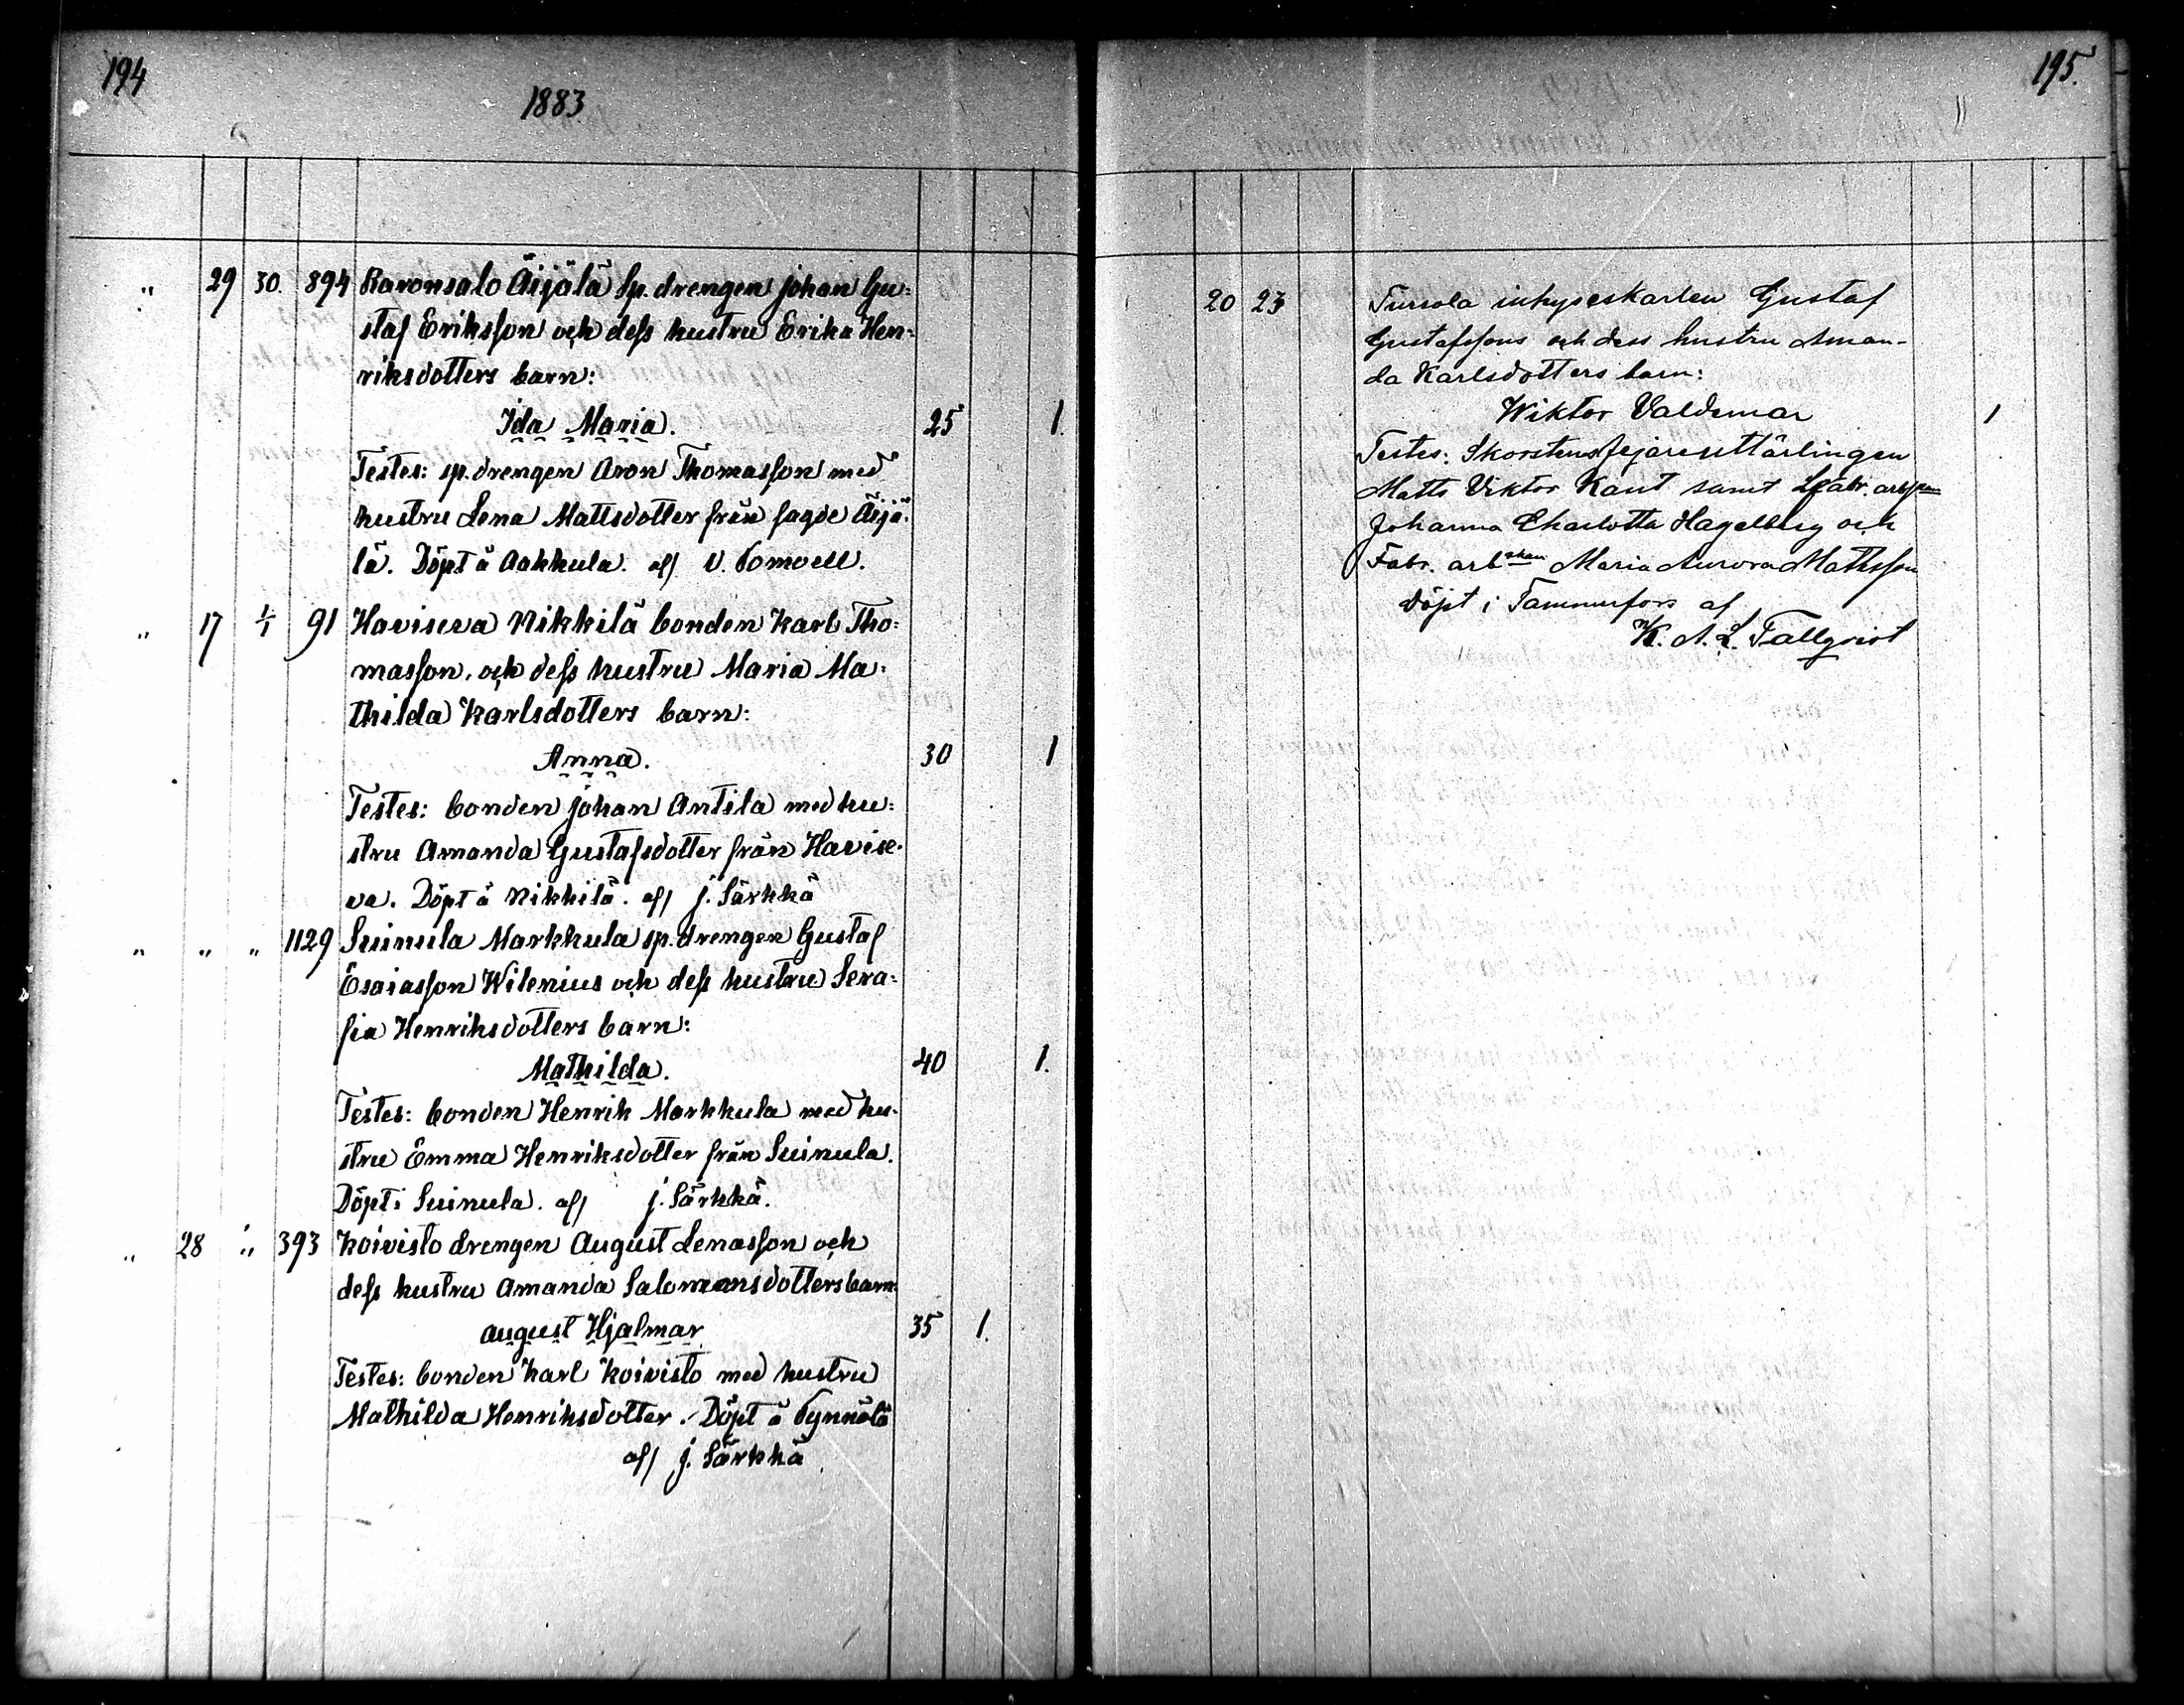 194
1883.
" 29 30. 894 Raronsalo Äijälä Sp. drengen Johan Gu-
staf Eriksson och dess hustru Erika Hen-
riksdotters barn:
Ida Maria. 25 1.
Testes: sp. drengen Aron Thomasson med
hustru Lena Mattsdotter från sagde Äijä-
lä. Döpt å Aakkula. af V. Pomoell.
" 17 1/1 91 Haviseva Nikkilä bonden Karl Tho-
masson, och dess hustru Maria Ma-
thilda Karlsdotters barn:
Anna. 30 1
Testes: bonden Johan Antila med hu-
stru Amanda Gustafsdotter från Havise-
va. Döpt å Nikkilä. af J. Särkkä
" " " 1129 Suinula Markkula sp. drengen Gustaf
Esaiasson Wilenius och dess hustru Sera-
fia Henriksdotters barn:
Mathilda. 40 1.
Testes: bonden Henrik Markkula med hu-
stru Emma Henriksdotter från Suinula.
Döpt i Suinula. af J. Särkkä.
" 28 " 393 Koivisto drengen August Lenasson och
dess hustru Amanda Salomonsdotters barn
August Hjalmar 35 1.
Testes: bonden Karl Koivisto med hustru
Mathilda Henriksdotter. Döpt å
af J. Särkkä
195.
20 23 Tursola inhyseskarlen Gustaf
Gustafssons och dess hustru Aman-
da Karlsdotters barn:
Wiktor Valdemar 1
Testes: Skorstensfejarelärlingen
Matts Viktor Kant samt
Johanna Charlotta Hagelberg och
Fabr. arbskan Maria Aurora Mathsson
döpt i Tammerfors af
K. A. L. Tallqvist